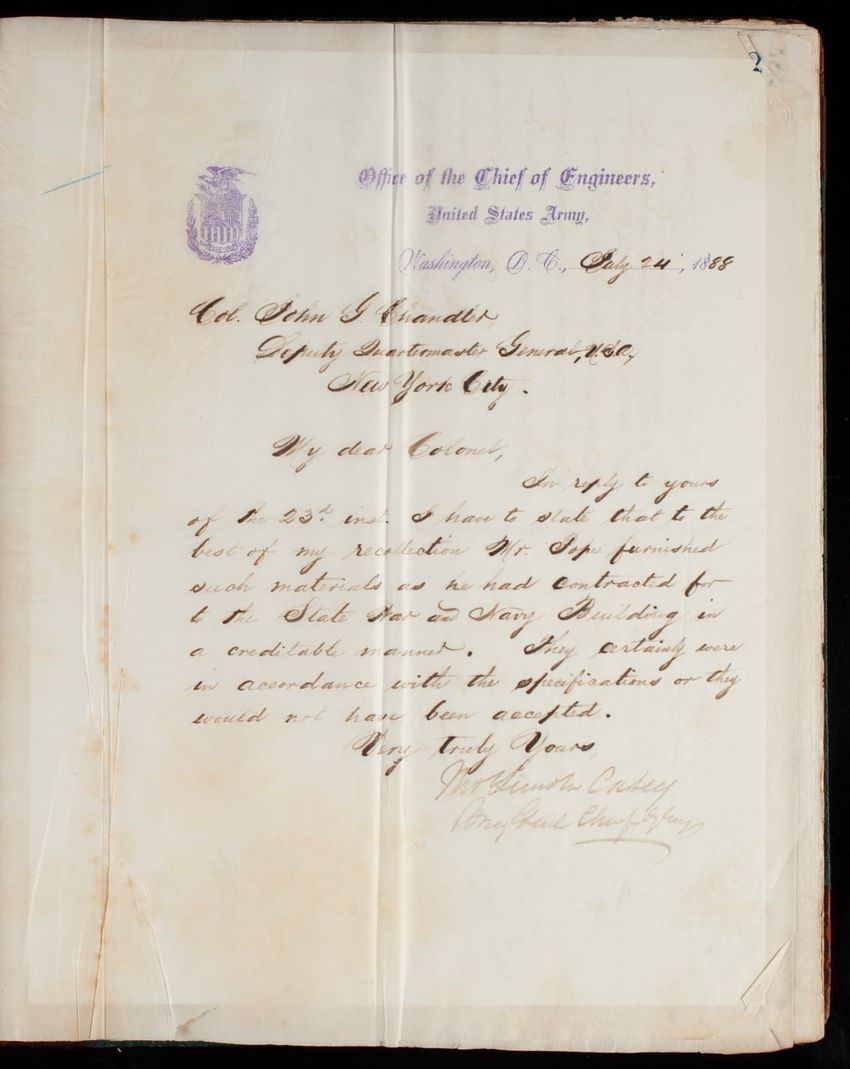 2
Office of the Chief of Engineers,
United States Army,
Washington, D. C., July 24, 1888
Col. John G. Chandler,
Deputy Quartermaster General, U.S.A.,
New York City.
My dear Colonel,
In reply to yours
of the 23d inst. I have to state that to the
best of my recollection Mr. Pope furnished
such materials as he had contracted for
to the State War and Navy Building in
a creditable manner. They certainly were
in accordance with the specifications or they
would not have been accepted.
Very truly Yours,
Thos Lincoln Casey
Brig Genl Chief of Engrs